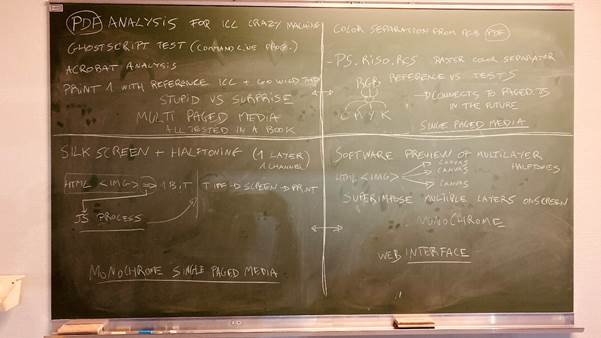 PDF ANALYSIS FOR ICC CRAZY MACHINE
GHOSTSCRIPT TEST (COMMAND LINE PROG.)
ACROBAT ANALYSIS
PRINT 1 WITH REFERENCE ICC + GO WILD
STUPID VS SURPRISE
MULTI PAGED MEDIA
ALL TESTED IN A BOOK
COLOR SEPARATION FROM RGB PDF
- PS.RISO.RCS RASTER COLOR SEPARATER
RGB REFERENCE VS TESTS
CMYK
→ CONNECTS TO PAGED.JS
IN THE FUTURE
SINGLE PAGED MEDIA
SILK SCREEN + HALFTONING (1 LAYER)
1 CHANNEL
HTML <IMG> → 1 BIT TIFF → SCREEN → PRINT
JS PROCESS
MONOCHROME SINGLE PAGED MEDIA
SOFTWARE PREVIEW OF MULTILAYER
HALFTONES
HTML <IMG>
CANVAS
CANVAS
CANVAS
SUPERIMPOSE MULTIPLE LAYERS ONSCREEN
MONOCHROME
WEB INTERFACE